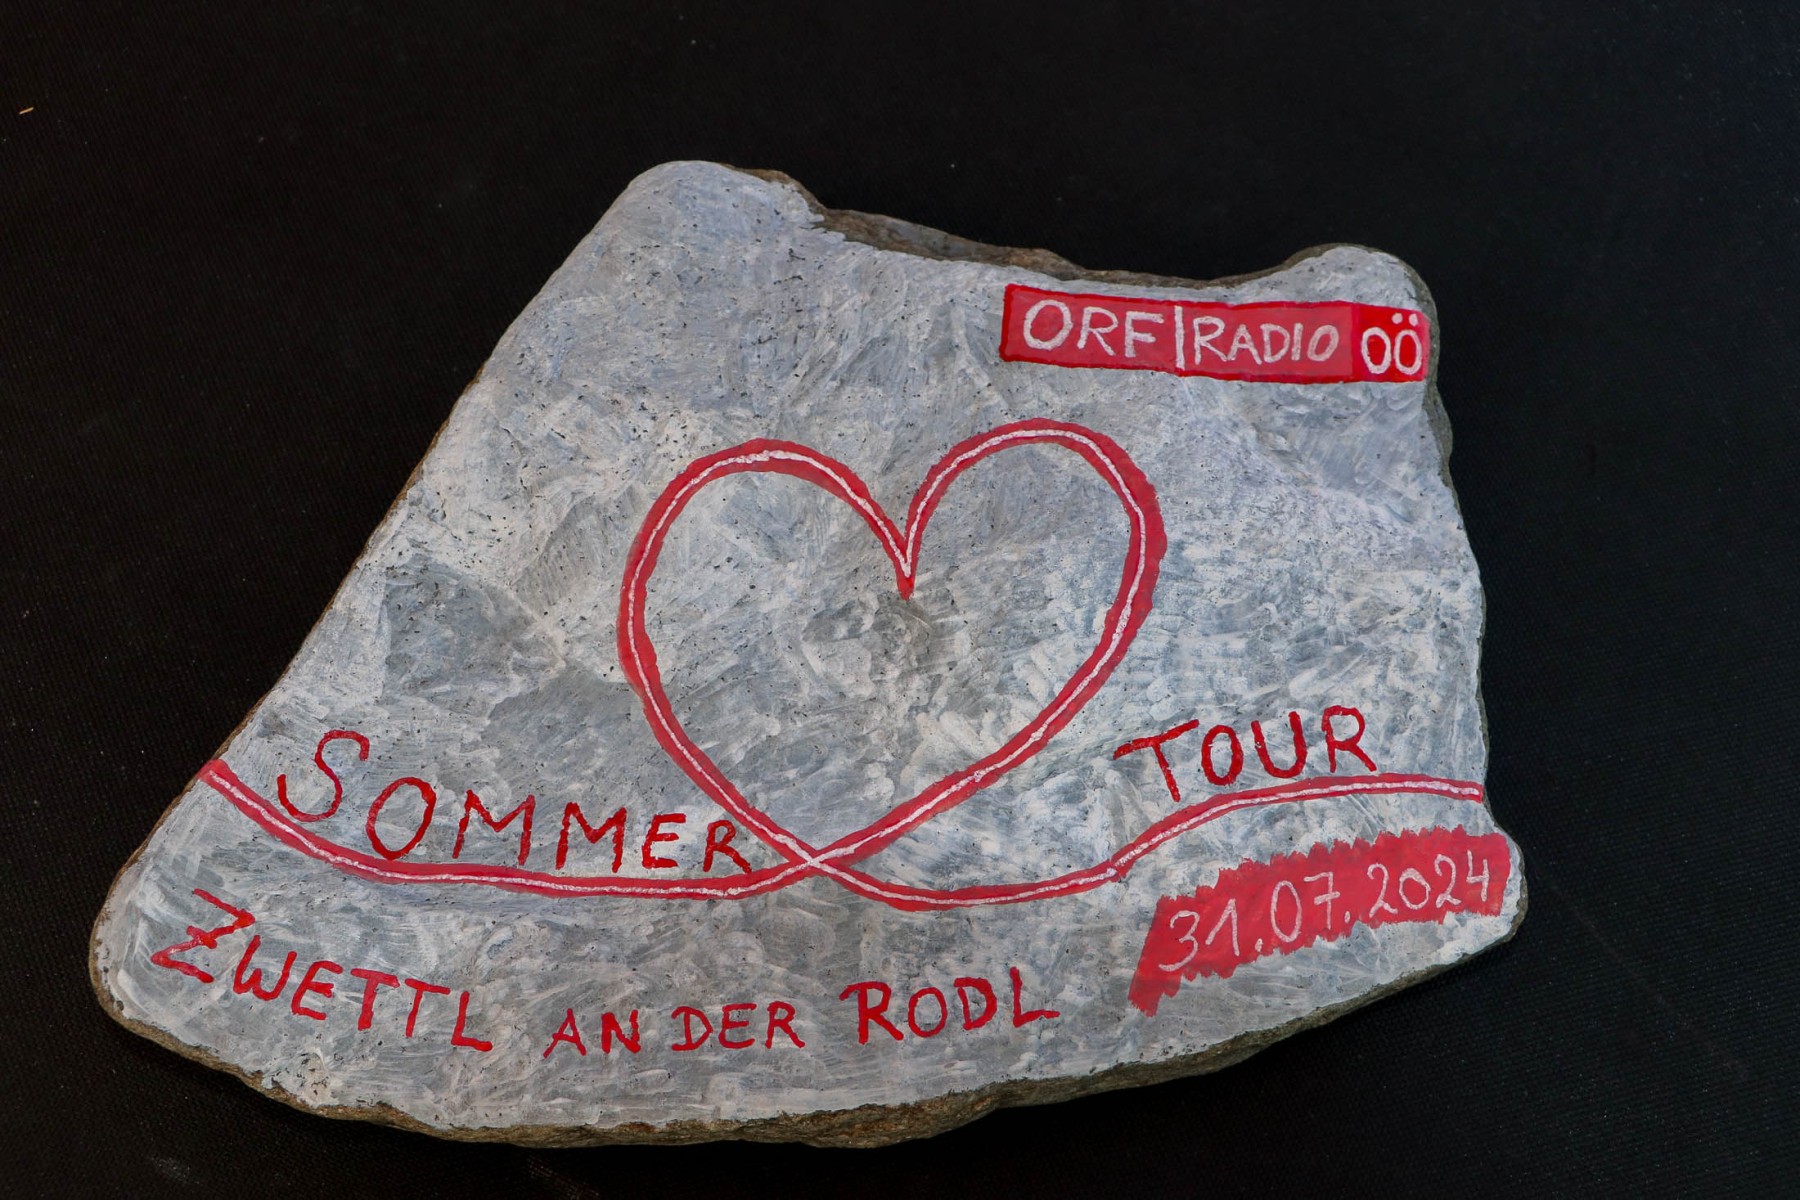 ORF|RADIO OÖ
SOMMER TOUR
31.07.2024
ZWETTL AN DER RODL